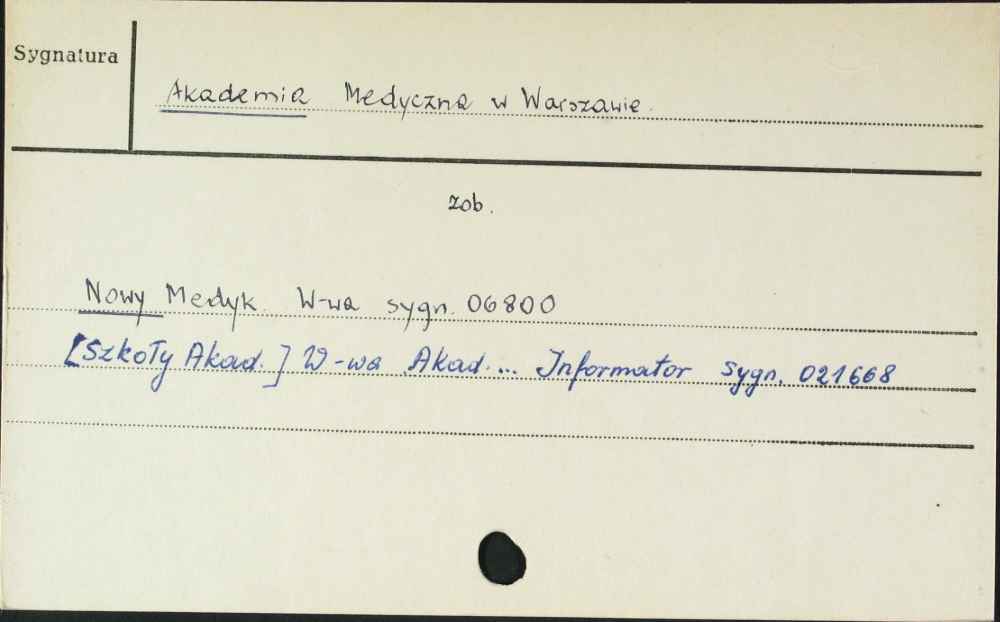 Sygnatura
Akademia Medyczna w Warszawie.
zob.
Nowy Medyk. W-wa sygn. 06800
[Szkoły Akad.] W-wa Akad.... Informator sygn. 021668